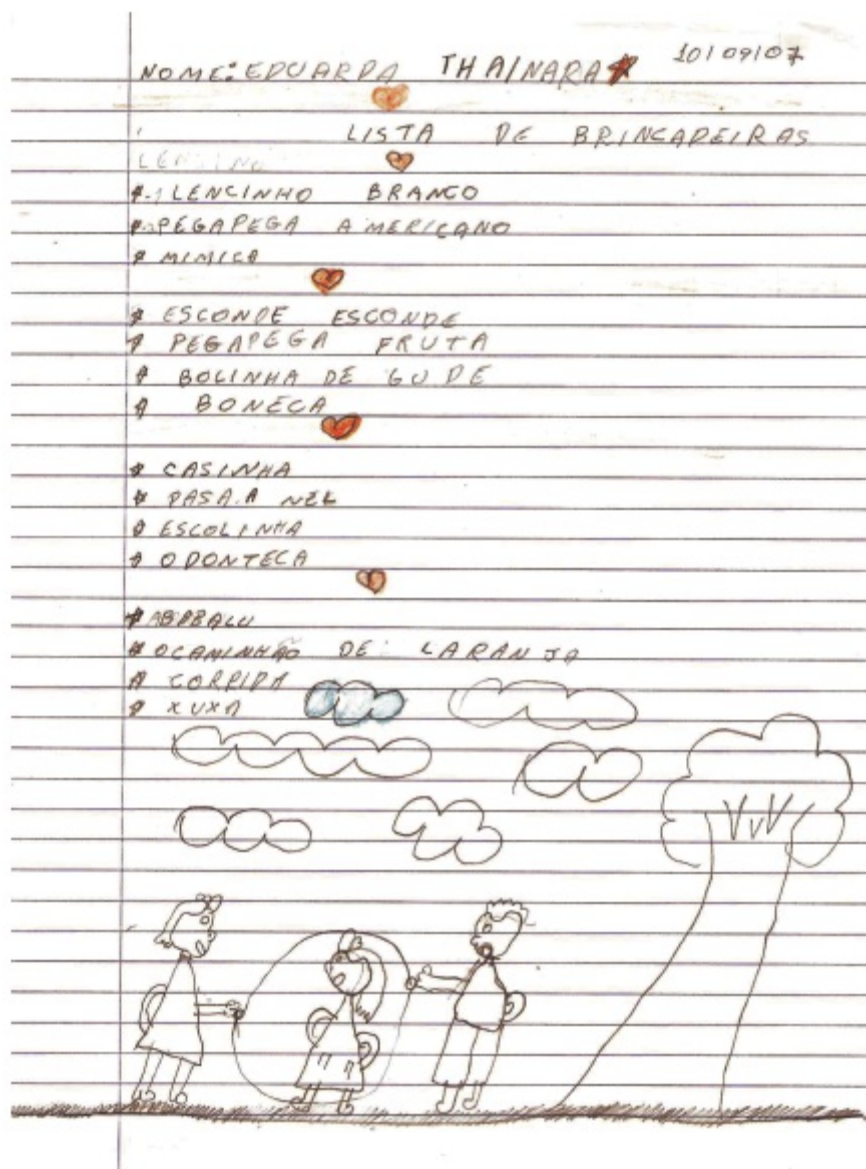 NOME: EDUARDA THAINARA 10/09/07
LISTA DE BRINCADEIRAS
LENCINHO BRANCO
PEGAPEGA AMERICANO
MIMICA
ESCONDE ESCONDE
PEGAPEGA FRUTA
BOLINHA DE GUDE
BONECA
CASINHA
PASA.A NEL
ESCOLINHA
ODONTECA
OCAMINHÃO DE LARANJA
CORRIDA
XUXA